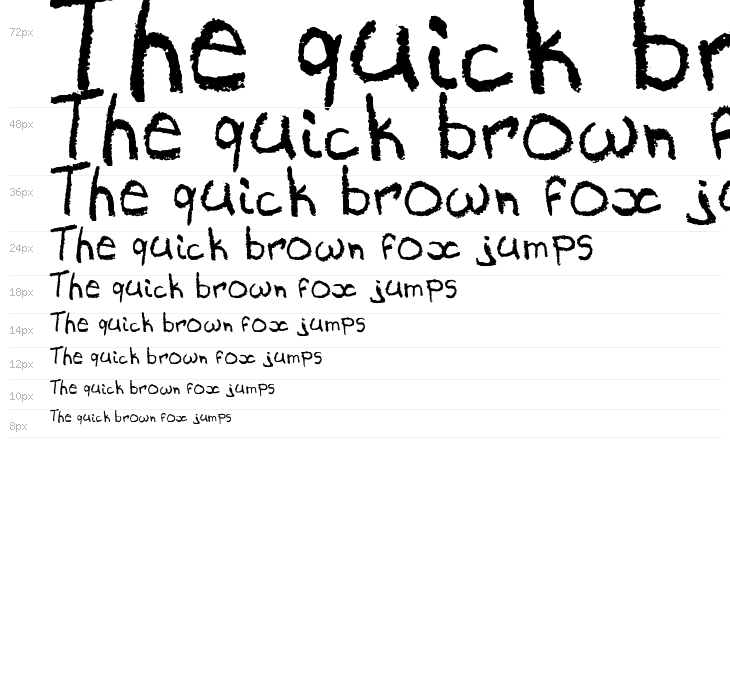 72px The quick br
48px The quick brown f
36px The quick brown fox j
24px The quick brown fox jumps
18px The quick brown fox jumps
14px The quick brown fox jumps
12px The quick brown fox jumps
10px The quick brown fox jumps
8px The quick brown fox jumps